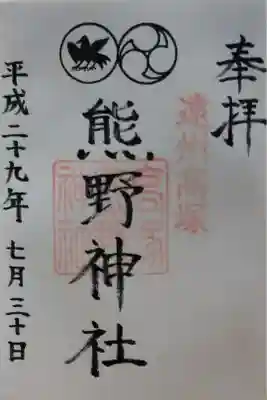 奉拝
熊野神社
平成二十九年 七月三十日